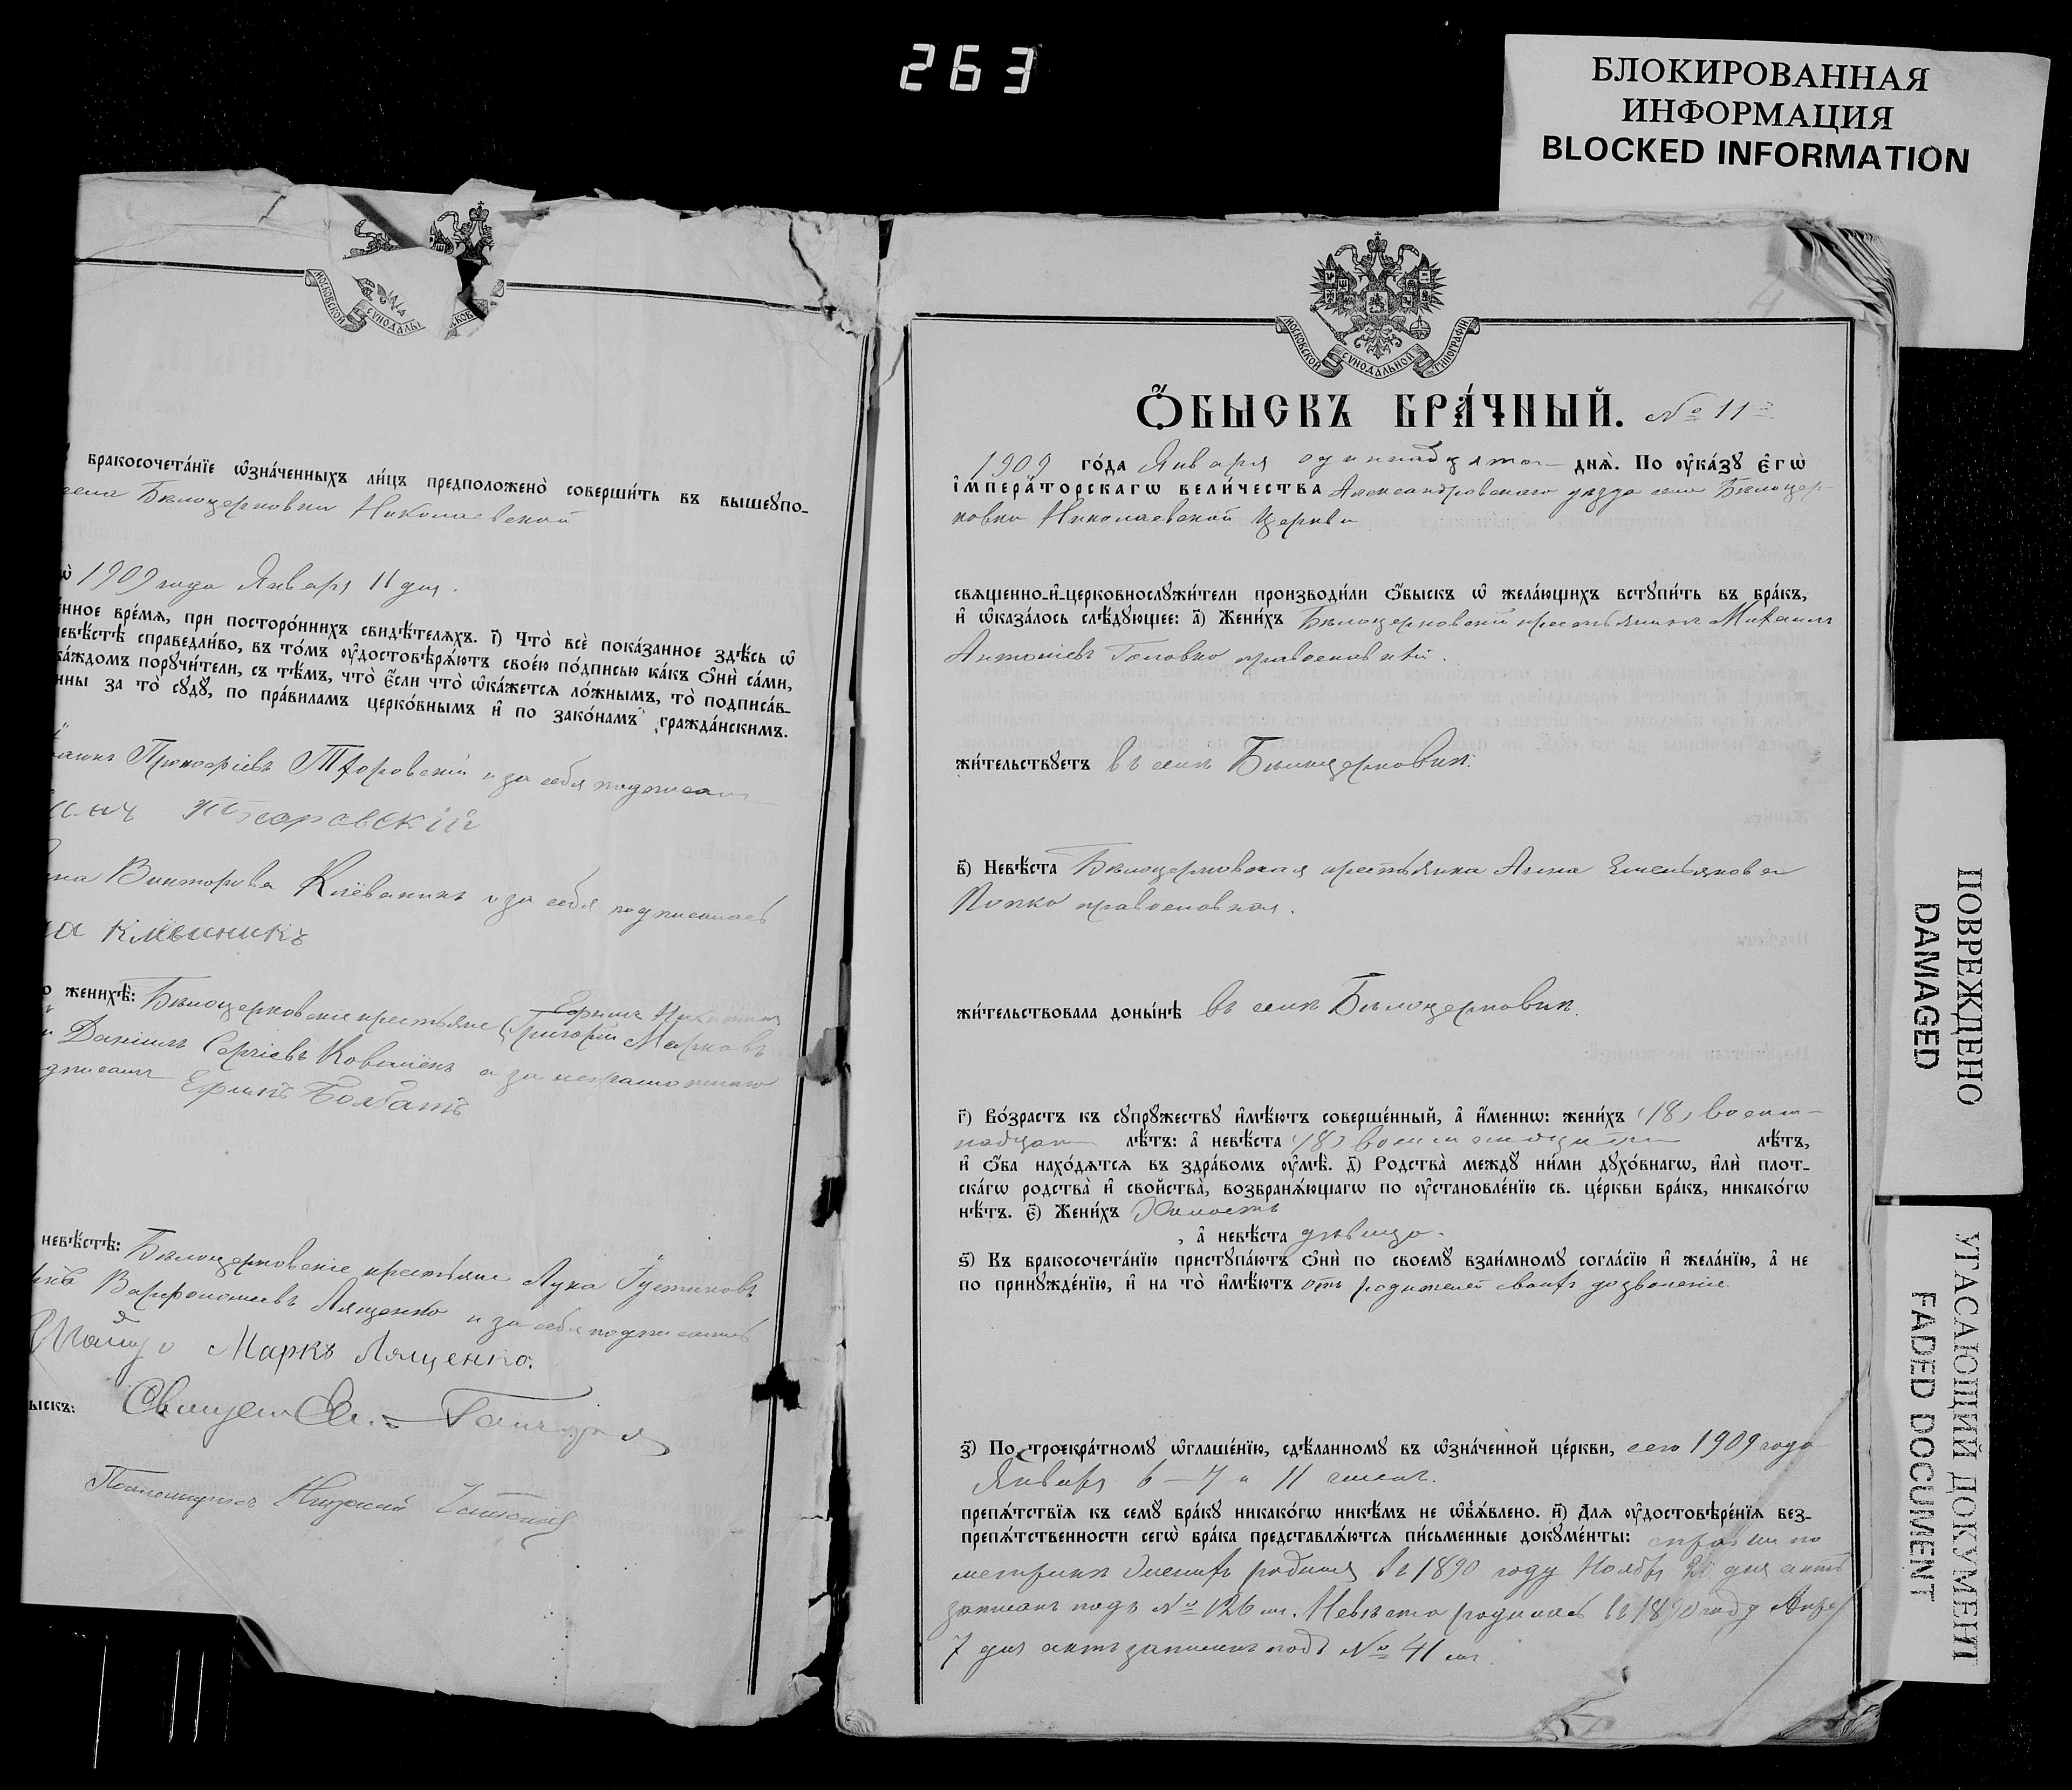 263
БЛОКИРОВАННАЯ
ИНФОРМАЦИЯ
BLOCKED INFORMATION
МОСКОВСКОЙ
СѴНОДАЛЬ
бракосочета́нїе ѡ҆зна́ченныхъ ли́цъ предположено̀ соверши́ть въ вышеꙋпо-
села Бѣлоцерковки Николаевской
1909 года Января 11 дня.
е́нное вре́мѧ, при посторо́ннихъ свидѣ́телѧхъ. і҃) Что̀ всѐ пока́занное здѣ́сь ѡ҆
невѣ́стѣ справедли́во, въ то́мъ ᲂу҆достовѣрѧ́ютъ свое́ю по́дписью ка́къ ѻ҆нѝ са́ми,
ка́ждомъ порꙋчи́тели, съ тѣ́мъ, что̀ є҆́сли что̀ ѡ҆ка́жетсѧ ло́жнымъ, то̀ подписа́в-
нны за то̀ сꙋдꙋ̀, по пра́виламъ церко́внымъ и҆ по зако́намъ гражда́нскимъ.
Прокофіевъ Тхоровскій и за себя подписал
Тхоровскій
Викторова и за себя подписалась
женихѣ̀: Бѣлоцерковскіе крестьяне Ефимъ Григорій Марковъ
Даніилъ Сергіевъ а за неграмотнаго
Ефимъ
невѣ́стѣ: Бѣлоцерковскіе крестьяне Лука Іустиновъ
Варфоломеевъ Лященко и за себя подписались
Маркъ Лященко.
ыскъ: Священ
Псаломщикъ
МОСКОВСКОЙ СѴНОДАЛЬНОЙ ТИПОГРАФІИ
Ѻ҆́БЫСКЪ БРА́ЧНЫЙ. № 11
1909 го́да Января одиннадцатого днѧ̀. По ᲂу҆ка́зꙋ Є҆гѡ̀
И҆мпера́торскагѡ вели́чества Александровскаго уѣзда села Бѣлоцер-
ковки Николаевской Церкви
свѧще́нно-и҆-церковнослꙋжи́тели производи́ли ѻ҆́быскъ ѡ҆ жела́ющихъ встꙋпи́ть въ бра́къ,
и҆ ѡ҆каза́лось слѣ́дꙋющее: а҃) Жени́хъ Бѣлоцерковскій крестьянинъ Михаилъ
Антоніевъ Головко православный.
жи́тельствꙋетъ въ селѣ Бѣлоцерковкѣ.
в҃) Невѣ́ста Бѣлоцерковская крестьянка Анна Емельянова
Попко православная.
жи́тельствовала доны́нѣ въ селѣ Бѣлоцерковкѣ.
г҃) Во́зрастъ къ сꙋпрꙋ́жествꙋ и҆мѣ́ютъ соверше́нный, а҆ и҆́меннѡ: жени́хъ (18) восем-
надцать лѣ́тъ: а҆ невѣ́ста (18) восемнадцать лѣ́тъ,
и҆ ѻ҆́ба нахо́дѧтсѧ въ здра́вомъ ᲂу҆мѣ̀. д҃) Родства̀ междꙋ̀ ни́ми дꙋхо́внагѡ, и҆лѝ плот-
ска́гѡ родства̀ и҆ сво́йства̀, возбранѧ́ющагѡ по ᲂу҆становле́нїю св. це́ркви бра́къ, никако́гѡ
нѣ́тъ. є҃) Жени́хъ Холостъ
, а҆ невѣ́ста дѣвица.
ѕ҃) Къ бракосочета́нїю пристꙋпа́ютъ ѻ҆нѝ по своемꙋ̀ взаи́мномꙋ согла́сїю и҆ жела́нїю, а҆ не
по принꙋжде́нїю, и҆ на то̀ и҆мѣ́ютъ отъ родителей своихъ дозволеніе.
з҃) По троекра́тномꙋ ѡ҆глаше́нїю, сдѣ́ланномꙋ въ ѡ҆зна́ченной це́ркви, сего 1909 года
Января 6 – 7 и 11 чиселъ.
препѧ́тствїѧ къ семꙋ̀ бра́кꙋ никако́гѡ никѣ́мъ не ѡ҆б̾ѧ́влено. и҃) Длѧ ᲂу҆достовѣре́нїѧ без-
препѧ́тственности сегѡ̀ бра́ка представлѧ́ютсѧ пи́сьменные докꙋме́нты: справки по
метрикѣ Женихъ родился въ 1890 году Ноября дня актъ
записанъ подъ № 126 м. Невѣста родилась въ 1890 году Апрѣ
7 дня актъ записанъ подъ № 41
ПОВРЕЖДЕНО
DAMAGED
УГАСАЮЩИЙ ДОКУМЕНТ
FADED DOCUMENT